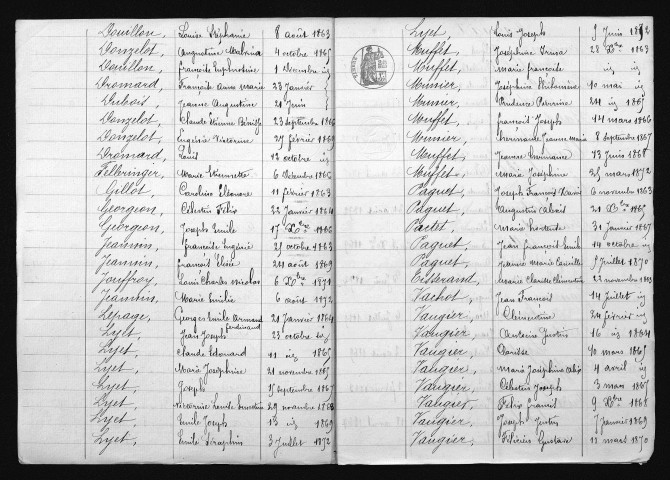 Douillon, Louise Stéphanie 8 août 1863
Donzelot, Augustine 4 octobre 1865
Douillon, françoise Euphrosine 1 Décembre id
Dromard, Françoise Anne Marie 23 Janvier
Dubois, Jeanne Augustine 21 Juin
Donzelot, Claude Etienne 23 septembre 1866
Donzelot, Eugénie Victorine 27 février 1869
Dromard, Louis 12 octobre id
Fellringer, Marie 6 Décembre 1865
Gillot, Caroline Eléonore 11 février 1863
Georgeon, Célestin Félix 22 Janvier 1864
Georgeon, Joseph Emile 17 Xbre 1866
Jeannin, françoise Eugénie 21 octobre 1863
Jeannin, francois Elisée 24 août 1869
Jouffroy, Louis Charles Nicolas 6 Xbre 1871
Jeannin, Marie Emilie 6 août 1872
Lepage, Georges Emile Armand ferdinand 21 Janvier 1864
Lyet, Jean Joseph 23 octobre id
Lyet, Claude Edouard 11 id 1865
Lyet, Marie Joséphine 21 novembre 1865
Lyet, Joseph 15 septembre 1867
Lyet, Ernestine 29 novembre 1868
Lyet, Emile Joseph 13 id 1869
Lyet, Emile Séraphin 3 Juillet 1872
Lyet, Louis Joseph 9 Juin 1872
Muffet, Joséphine 28 Xbre 1863
Muffet, Marie francoise id id
Munier, Joséphine Philomène 10 mai id
Munier, Prudence 24 id 1865
Muffet, françois Joseph 14 mars 1866
Munier, Jeanne Marie 8 septembre 1867
Muffet, Jeanne 13 Juin 1868
Muffet, Marie Joséphine 25 mars 1872
Paquet, Joseph François Xavier 6 novembre 1863
Paquet, Augustin 21 Xbre 1865
Paclet, Marie hortense 31 Janvier 1867
Paquet, Jean françois Emile 14 octobre id
Paquet, Jeanne Marie 5 Juillet 1870
Marie Claude Clémentine 22 novembre 1863
Vachot, Jean François 14 Juillet id
Vaugier, Clémentine 24 février id
Vaugier, Antoine Justin 16 id 1864
Vaugier, Clarisse 10 mars 1865
Vaugier, Marie Joséphine 4 avril id
Vaugier, Célestin Joseph 3 mars 1867
Vaugier, Félix 9 Xbre 1868
Vaugier, Joseph Justin 7 Janvier 1869
Vaugier, Gustave 11 mars 1870